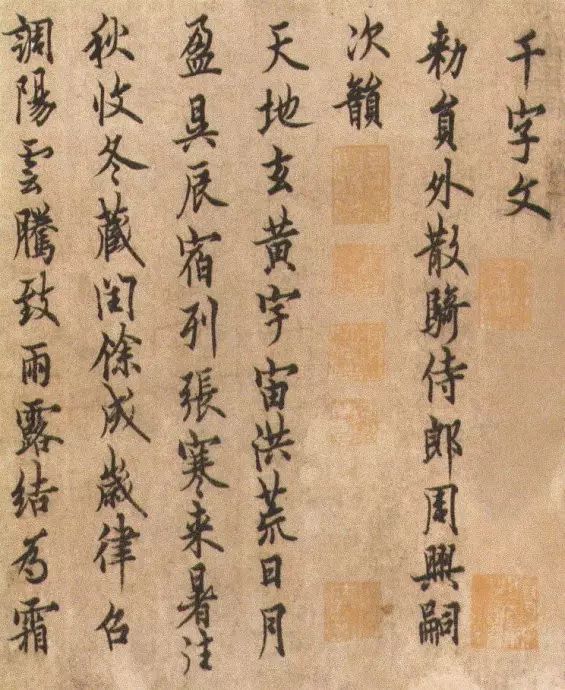 千字文
勅員外散騎侍郎周興嗣
次韻
天地玄黄宇宙洪荒日月
盈昃辰宿列張寒来暑往
秋收冬藏閏餘成歲律召
調陽雲騰致雨露結為霜